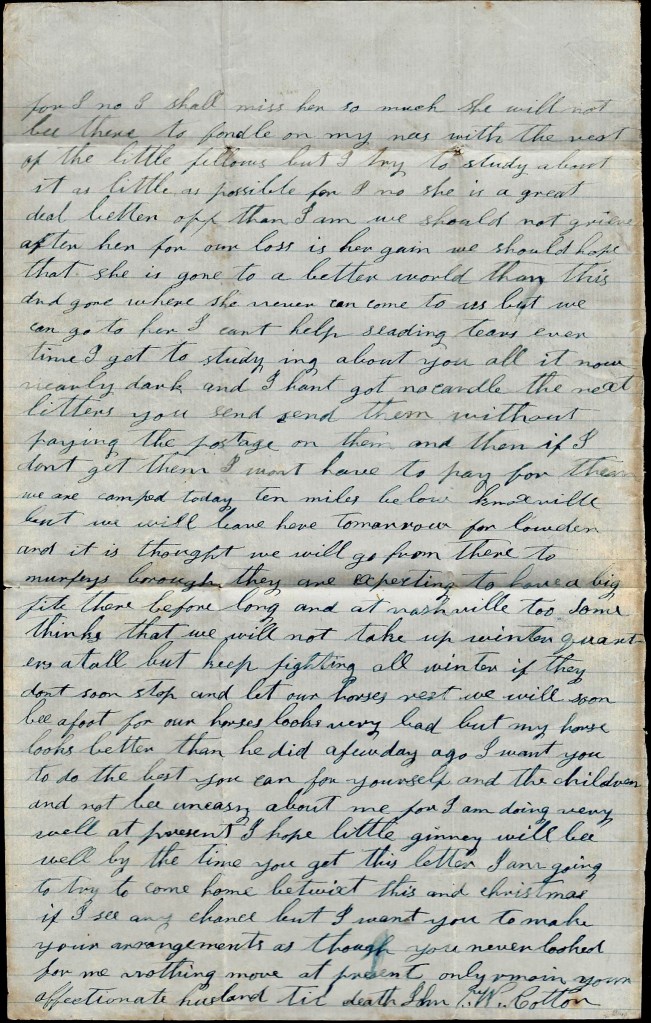 for I no I shall miss her so much she will not
bee there to fondle on my nees with the rest
of the little fellows but I try to study about
it as little as possible for I no she is a great
deal better off than I am we should not grieve
after her for our loss is her gain we should hope
that she is gone to a better world than this
and gone where she never can come to us but we
can go to her I cant help seading tears ever
time I get to study ing about you all it now
nearly dark and I hant got no candle the next
litters you send send them without
paying the postage on them and then if I
dont get them I wont have to pay for them
we are camped today ten miles below knoxville
but we will leave here tomarrow for lowden
and it is thought we will go from there to
murfeys borough they are expecting to have a big
fite there before long and at nashville too some
thinks that we will not take up winter quart-
ers atall but keep fighting all winter if they
dont soon stop and let our horses rest we will soon
bee afoot for our horses looks very bad but my horse
looks better than he did afewday ago I want you
to do the best you can for yourself and the children
and not bee uneasy about me for I am doing very
well at present I hope little ginney will bee
well by the time you get this letter I am going
to try to come home betwixt this and christmas
if I see any chance but I want you to make
your arrangements as though you never looked
for me nothing more at present only remain your
affectionate husband til death John W. Cotton